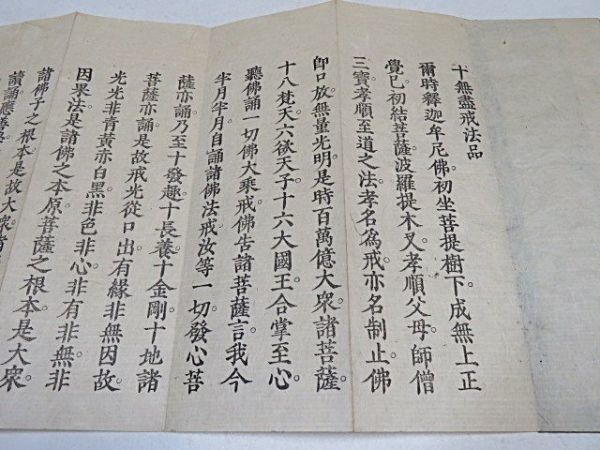 十無盡戒法品
爾時釋迦牟尼佛。初坐菩提樹下。成無上正
覺已。初結菩薩波羅提木叉。孝順父母師僧
三寶。孝順至道之法。孝名為戒。亦名制止。佛
即口放無量光明。是時百萬億大衆。諸菩薩。
十八梵天。六欲天子。十六大國王。合掌至心。
聽佛誦一切佛大乘戒。佛告諸菩薩言。我今
半月半月。自誦諸佛法戒。汝等一切發心菩
薩亦誦。乃至十發趣。十長養。十金剛。十地諸
菩薩亦誦。是故戒光從口出。有緣非無因故。
光光非青黃赤白黑。非色非心。非有非無。非
因果法。是諸佛之本原。菩薩之根本。是大衆
諸佛子之根本。是故大衆
讀誦應善